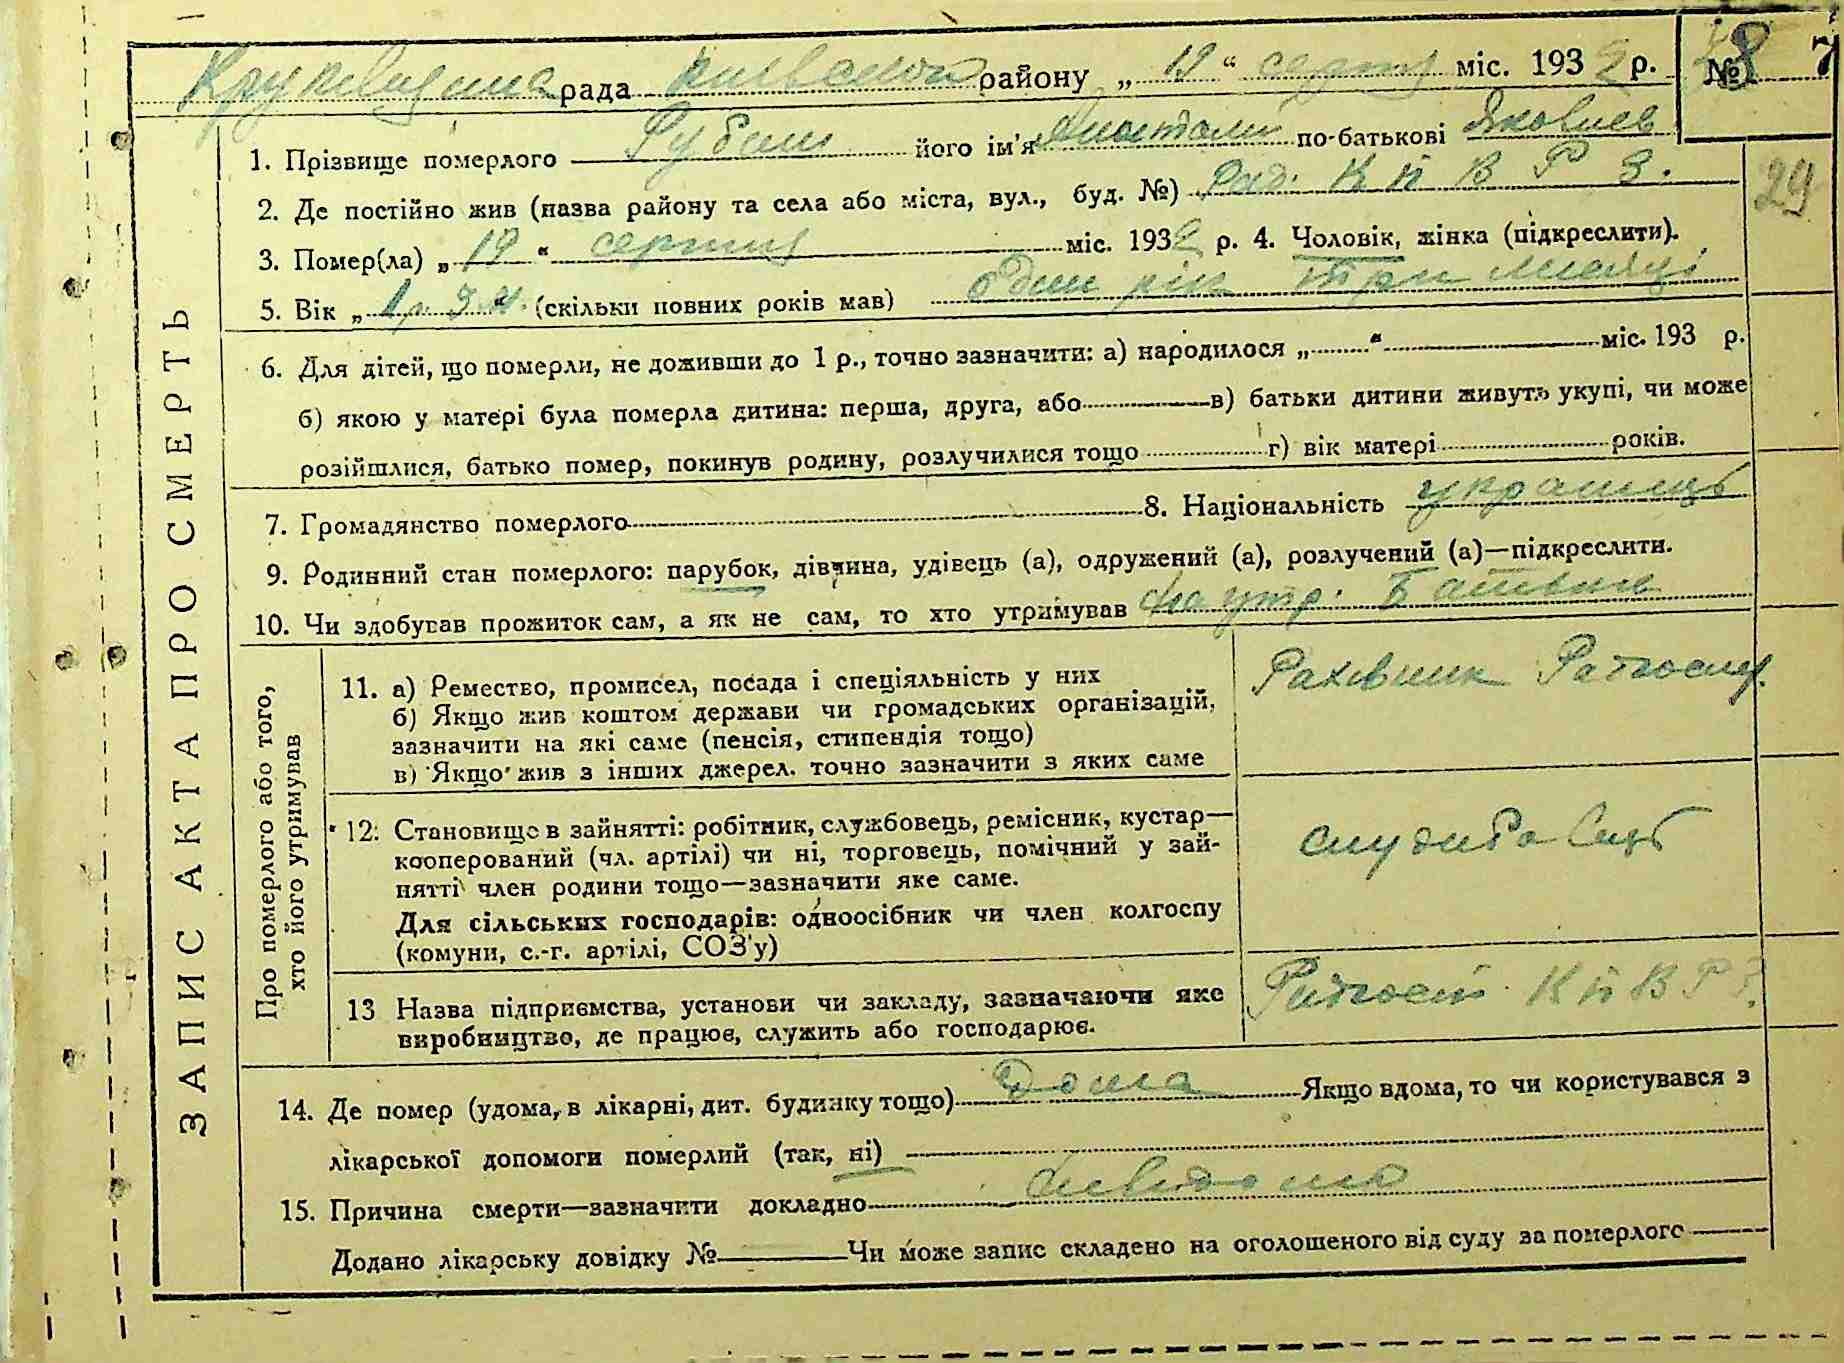 рада Київської району „ 19 “ серпн міс. 1932 р. № 8 7
1. Прізвище померлого Рубан його ім'я Анатолій по-батькові Яковлев
29
2. Де постійно жив (назва району та села або міста, вул., буд. №) Рад. К П В Р З.
3. Помер(ла) „ 19 “ серпня міс. 1932 р. 4. Чоловік, жінка (підкреслити).
5. Вік „ 1 р. 3 м. (скільки повних років мав) один рік три місяці
6. Для дітей, що померли, не доживши до 1 р., точно зазначити: а) народилося „ “ міс. 193 р.
б) якою у матері була померла дитина: перша, друга, або в) батьки дитини живуть укупі, чи може
розійшлися, батько помер, покинув родину, розлучилися тощо г) вік матері років.
7. Громадянство померлого 8. Національність українець
9. Родинний стан померлого: парубок, дівчина, удівець (а), одружений (а), розлучений (а)—підкреслити.
10. Чи здобував прожиток сам, а як не сам, то хто утримував на утр. Батьків
ЗАПИС АКТА ПРО СМЕРТЬ
Про померлого або того, хто його утримував
11. а) Ремество, промисел, посада і спеціяльність у них
б) Якщо жив коштом держави чи громадських організацій,
зазначити на які саме (пенсія, стипендія тощо)
в) Якщо жив з інших джерел. точно зазначити з яких саме
Рахівник
12. Становище в зайнятті: робітник, службовець, ремісник, кустар—
кооперований (чл. артілі) чи ні, торговець, помічний у зай-
нятті член родини тощо—зазначити яке саме.
Для сільських господарів: одноосібник чи член колгоспу
(комуни, с.-г. артілі, СОЗ'у)
13 Назва підприємства, установи чи закладу, зазначаючи яке
виробництво, де працює, служить або господарює.
К П В Р З.
14. Де помер (удома, в лікарні, дит. будинку тощо) Дома Якщо вдома, то чи користувався з
лікарської допомоги померлий (так, ні)
15. Причина смерти—зазначити докладно невідома
Додано лікарську довідку № Чи може запис складено на оголошеного від суду за померлого